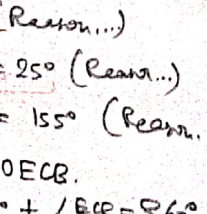 (Reason...)
= 25° (Reason...)
= 155° (Reason.
OECB.
° +